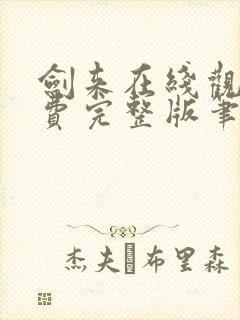 劍来在綫觀
費完整版筆
杰夫·布里森